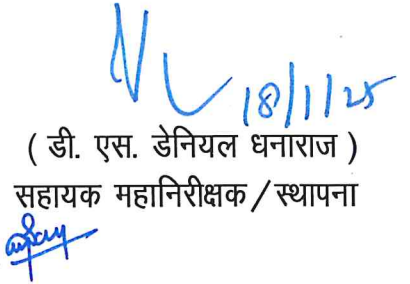 18/1/25
( डी. एस. डेनियल धनाराज )
सहायक महानिरीक्षक / स्थापना